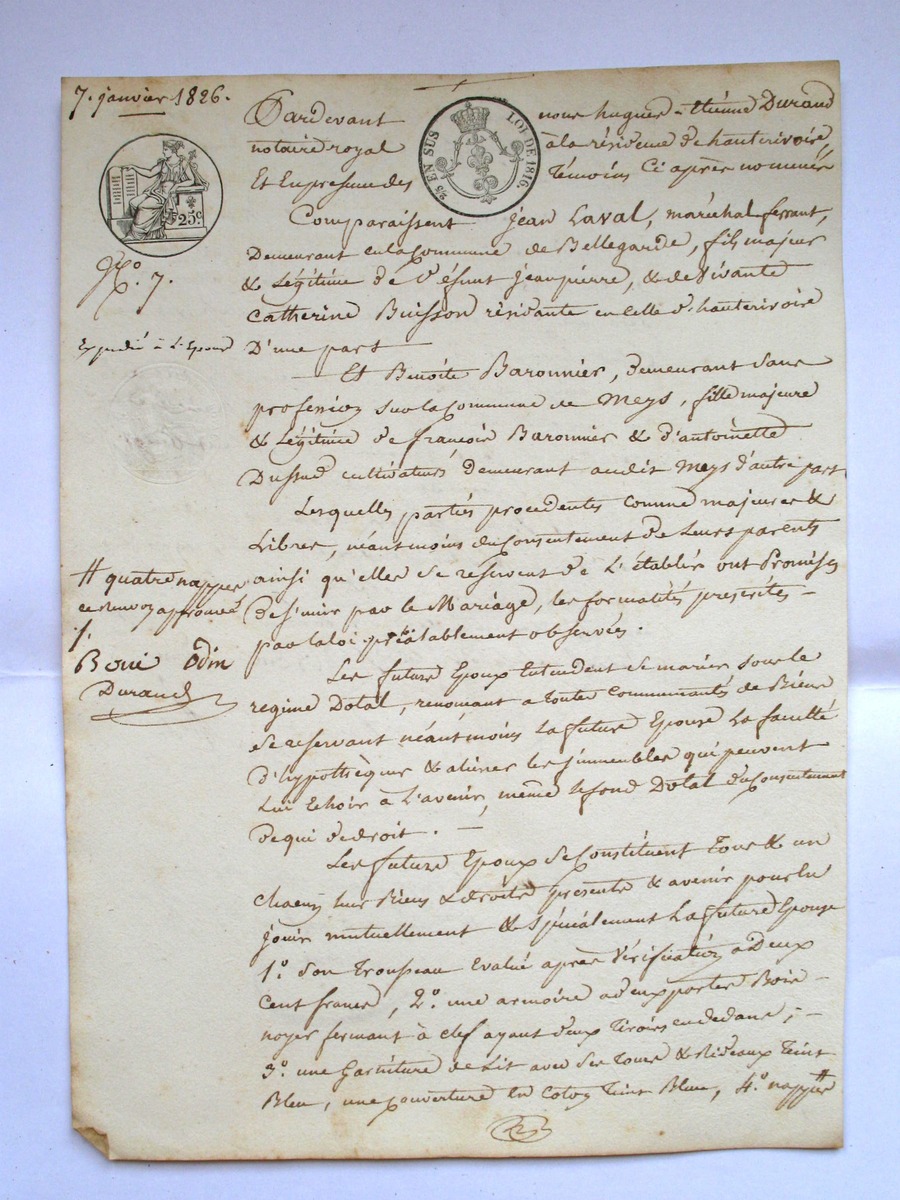 7. janvier 1826.
25c.
No. 7.
Expedié à L'Epoux
# quatre nappes
ce renvoy approuvé
Boué Odin
Durand
5/2 EN SUS LOI DE 1816.
Pardevant nous hugues-Etiénne Durand
notaire royal à la résidence de hauterivoire,
Et En presence des Témoins Ci après nommés
Comparaissent Jean Laval, maréchal ferrant,
Demeurant en la Commune de Bellegarde, fils majeur
& Légitime de Défunt Jeanpierre, & de Vivante
Catherine Buisson résidante en celle d'hauterivoire
D'une part
Et Benoite Baronnier, demeurant sans
profession sur la Commune de Meys, fille majeure
& Légitime de françois Baronnier & d'antoinette
Dussud cultivateurs demeurant audit Meys d'autre part
Lesquelles partiés procédentes comme majeures &
Libres, néantmoins du Consentement de Leurs parents
ainsi qu'elles se réservent de L'établir ont Promisés
De s'unir par le Mariage, les formalités préscrites
par la loi préalablement observées.
Les future Epoux Entendent se marier sous le
regime Dotal, renonçant à toute Communauté de Biens
se reservant néantmoins La future Epouse La faculté
d'hypothèquer & aliéner les immeubles qui peuvent
Lui Echoir à L'avenir, même le fond Dotal du Consentement
De qui de droit.
Les future Epoux se Constituent Tous & un
chacun leurs Biens & droits présents & avenir pour En
jouir mutuellement & spécialement La future Epouse
1º. son Trousseau Evalué après Vérification à Deux
Cent francs, 2º. une armoire a deux portes Bois
noyer fermant à clef ayant deux Tiroirs en dedans;
3º. une Garniture de Lit avec ses Tours & Rideaux Teint
Bleu, une couverture En Coton Teint Bleue, 4º. nappes #